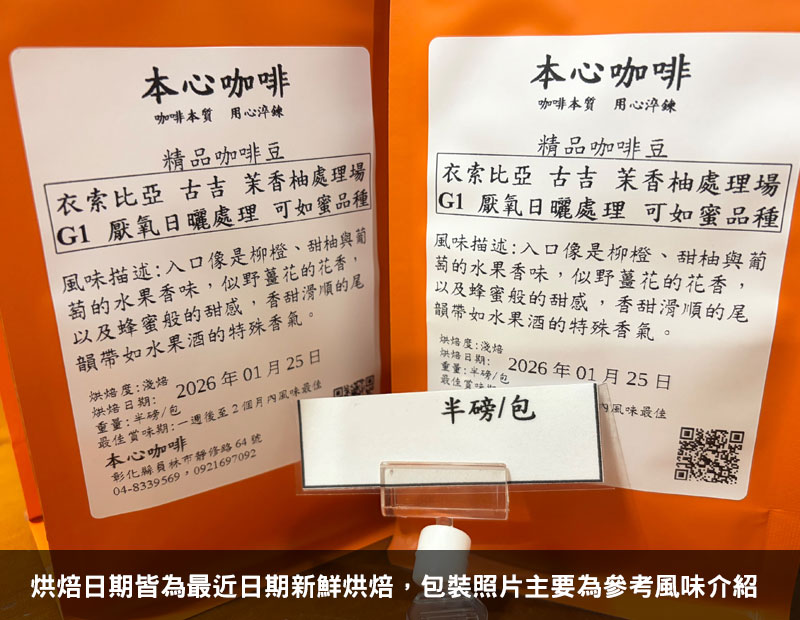 本心咖啡
咖啡本質 用心淬鍊
精品咖啡豆
衣索比亞 古吉 茉香柚處理場
G1 厭氧日曬處理 可如蜜品種
風味描述:入口像是柳橙、甜柚與葡
萄的水果香味，似野薑花的花香，
以及蜂蜜般的甜感，香甜滑順的尾
韻帶如水果酒的特殊香氣。
烘焙度:淺焙
烘焙日期: 2026 年 01 月 25 日
重量:半磅/包
最佳賞味期:一週後至2個月內風味最佳
本心咖啡
彰化縣員林市靜修路 64 號
04-8339569，0921697092
本心咖啡
咖啡本質 用心淬鍊
精品咖啡豆
衣索比亞 古吉 茉香柚處理場
G1 厭氧日曬處理 可如蜜品種
風味描述:入口像是柳橙、甜柚與葡
萄的水果香味，似野薑花的花香，
以及蜂蜜般的甜感，香甜滑順的尾
韻帶如水果酒的特殊香氣。
烘焙度:淺焙
烘焙日期: 2026 年 01 月 25 日
重量:半磅/包
最佳賞味 內風味最佳
半磅/包
烘焙日期皆為最近日期新鮮烘焙，包裝照片主要為參考風味介紹